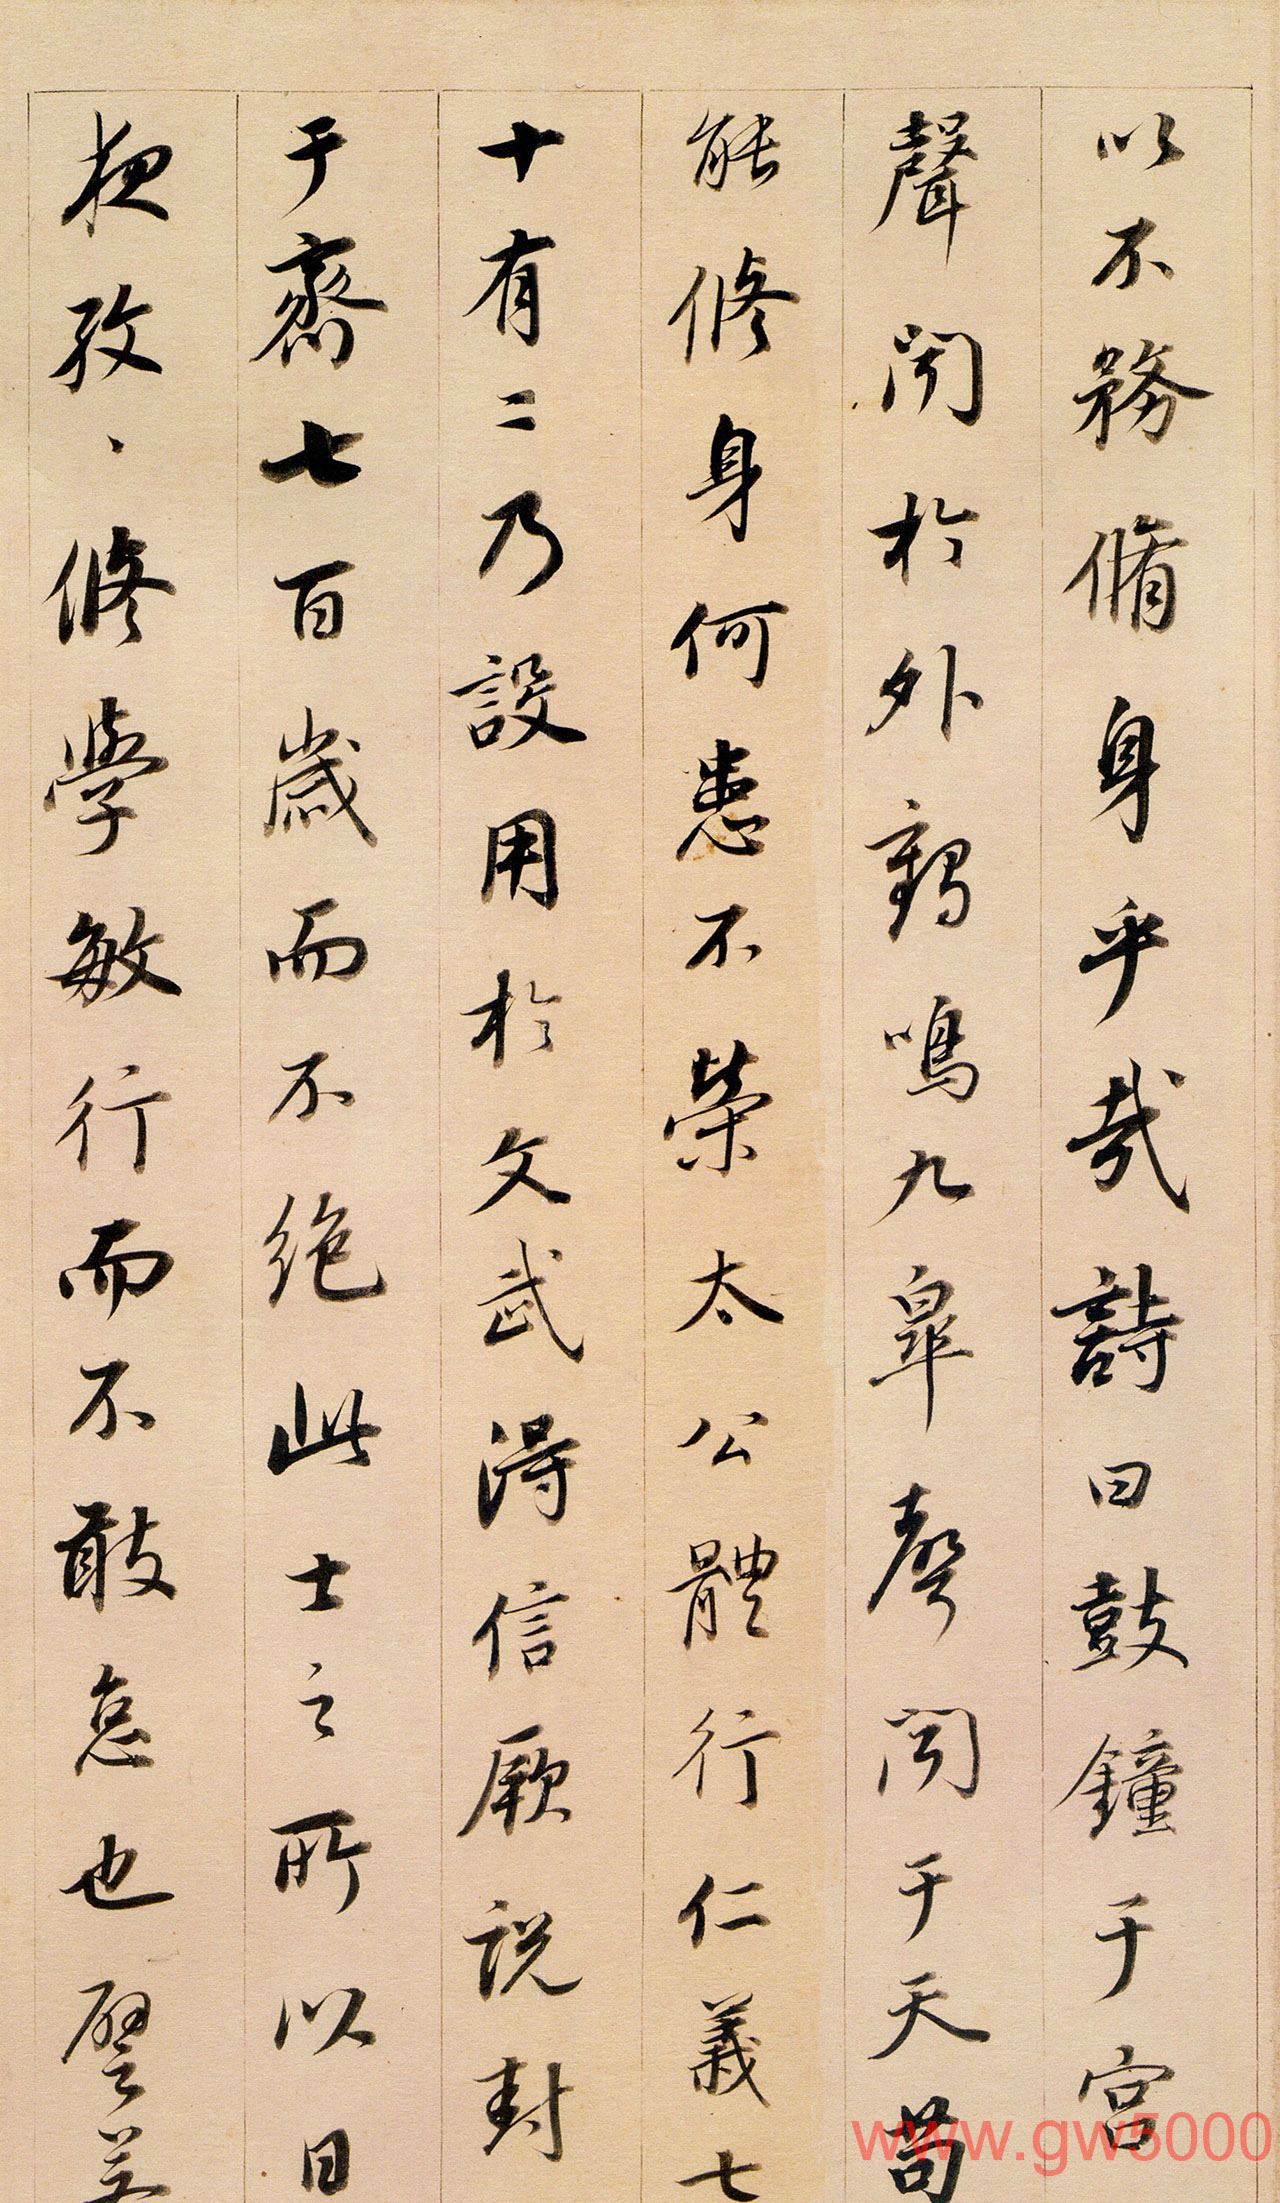 以不務脩身乎哉詩曰鼓鐘于宮
聲聞於外鶴鳴九皋聲聞于天苟
能修身何患不榮太公體行仁義七
十有二乃設用於文武得信厥説封
于齊七百歲而不絕此士之所以日
夜孜、修學敏行而不敢怠也譬若
www.gw5000